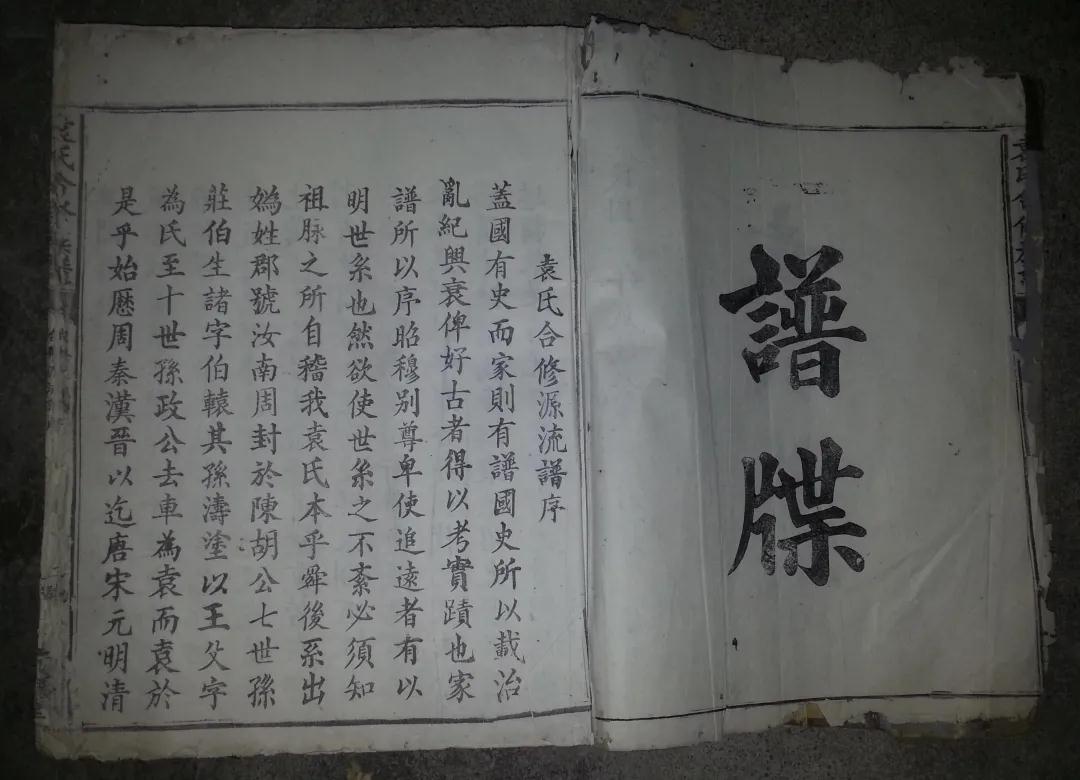 譜牒
袁氏合修源流譜序
蓋國有史而家則有譜國史所以載治
亂紀興衰俾好古者得以考實蹟也家
譜所以序昭穆別尊卑使追遠者有以
明世系也然欲使世系之不紊必須知
祖脉之所自稽我袁氏本乎舜後系出
媯姓郡號汝南周封於陳胡公七世孫
莊伯生諸字伯轅其孫濤塗以王父字
為氏至十世孫政公去車為袁而袁於
是乎始歷周秦漢晉以迄唐宋元明清